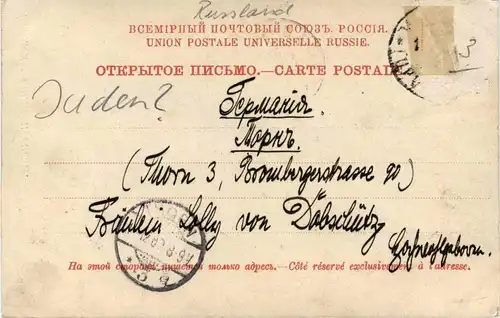 Russland
ВСЕМІРНЫЙ ПОЧТОВЫЙ СОЮЗЪ. РОССІЯ.
UNION POSTALE UNIVERSELLE RUSSIE.
13
ОТКРЫТОЕ ПИСЬМО.—CARTE POSTALE
Juden?
Германія
Торнъ
(Thorn 3, Brombergerstrasse 90)
Fräulein Lolly von Dobschütz
На этой сторонѣ пишется только адресъ.—Côté réservé exclusivement à l'adresse.